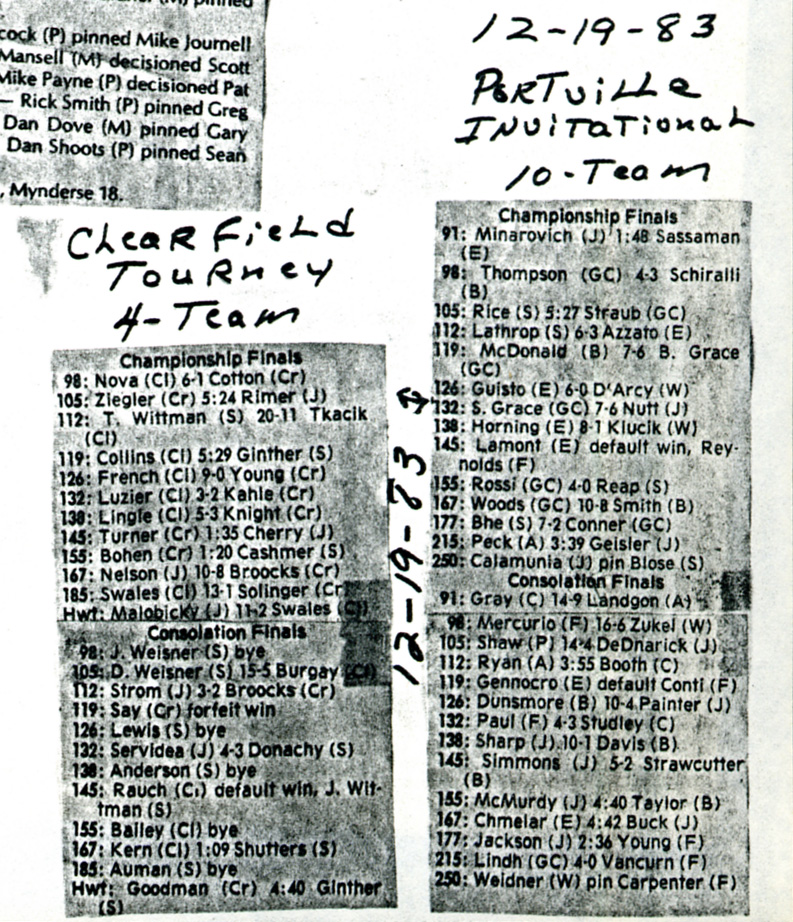 pinned
cock (P) pinned Mike Journell
Mansell (M) decisioned Scott
Mike Payne (P) decisioned Pat
— Rick Smith (P) pinned Greg
Dan Dove (M) pinned Gary
Dan Shoots (P) pinned Sean
, Mynderse 18.
Clearfield
Tourney
4-Team
Championship Finals
98: Nova (Cl) 6-1 Cotton (Cr)
105: Ziegler (Cr) 5:24 Rimer (J)
112: T. Wittman (S) 20-11 Tkacik
(Cl)
119: Collins (Cl) 5:29 Ginther (S)
126: French (Cl) 9-0 Young (Cr)
132: Luzier (Cl) 3-2 Kahle (Cr)
138: Lingle (Cl) 5-3 Knight (Cr)
145: Turner (Cr) 1:35 Cherry (J)
155: Bohen (Cr) 1:20 Cashmer (S)
167: Nelson (J) 10-8 Broocks (Cr)
185: Swales (Cl) 13-1 Solinger (Cr)
Hwt: Malobicky (J) 11-2 Swales (Cl)
Consolation Finals
98: J. Weisner (S) bye
105: D. Weisner (S) 15-5 Burgay (Cl)
112: Strom (J) 3-2 Broocks (Cr)
119: Say (Cr) forfeit win
126: Lewis (S) bye
132: Servidea (J) 4-3 Donachy (S)
138: Anderson (S) bye
145: Rauch (C.) default win, J. Wit-
tman (S)
155: Bailey (Cl) bye
167: Kern (Cl) 1:09 Shutters (S)
185: Auman (S) bye
Hwt: Goodman (Cr) 4:40 Ginther
(S)
12-19-83
12-19-83
Portville
Invitational
10-Team
Championship Finals
91: Minarovich (J) 1:48 Sassaman
(E)
98: Thompson (GC) 4-3 Schiralli
(B)
105: Rice (S) 5:27 Straub (GC)
112: Lathrop (S) 6-3 Azzato (E)
119: McDonald (B) 7-6 B. Grace
(GC)
126: Guisto (E) 6-0 D'Arcy (W)
132: S. Grace (GC) 7-6 Nutt (J)
138: Horning (E) 8-1 Klucik (W)
145: Lamont (E) default win, Rey-
nolds (F)
155: Rossi (GC) 4-0 Reap (S)
167: Woods (GC) 10-8 Smith (B)
177: Bhe (S) 7-2 Conner (GC)
215: Peck (A) 3:39 Geisler (J)
250: Calamunia (J) pin Blose (S)
Consolation Finals
91: Gray (C) 14-9 Landgon (A)
98: Mercurio (F) 16-6 Zukel (W)
105: Shaw (P) 14-4 DeDnarick (J)
112: Ryan (A) 3:55 Booth (C)
119: Gennocro (E) default Conti (F)
126: Dunsmore (B) 10-4 Painter (J)
132: Paul (F) 4-3 Studley (C)
138: Sharp (J) 10-1 Davis (B)
145: Simmons (J) 5-2 Strawcutter
(B)
155: McMurdy (J) 4:40 Taylor (B)
167: Chmelar (E) 4:42 Buck (J)
177: Jackson (J) 2:36 Young (F)
215: Lindh (GC) 4-0 Vancurn (F)
250: Weidner (W) pin Carpenter (F)